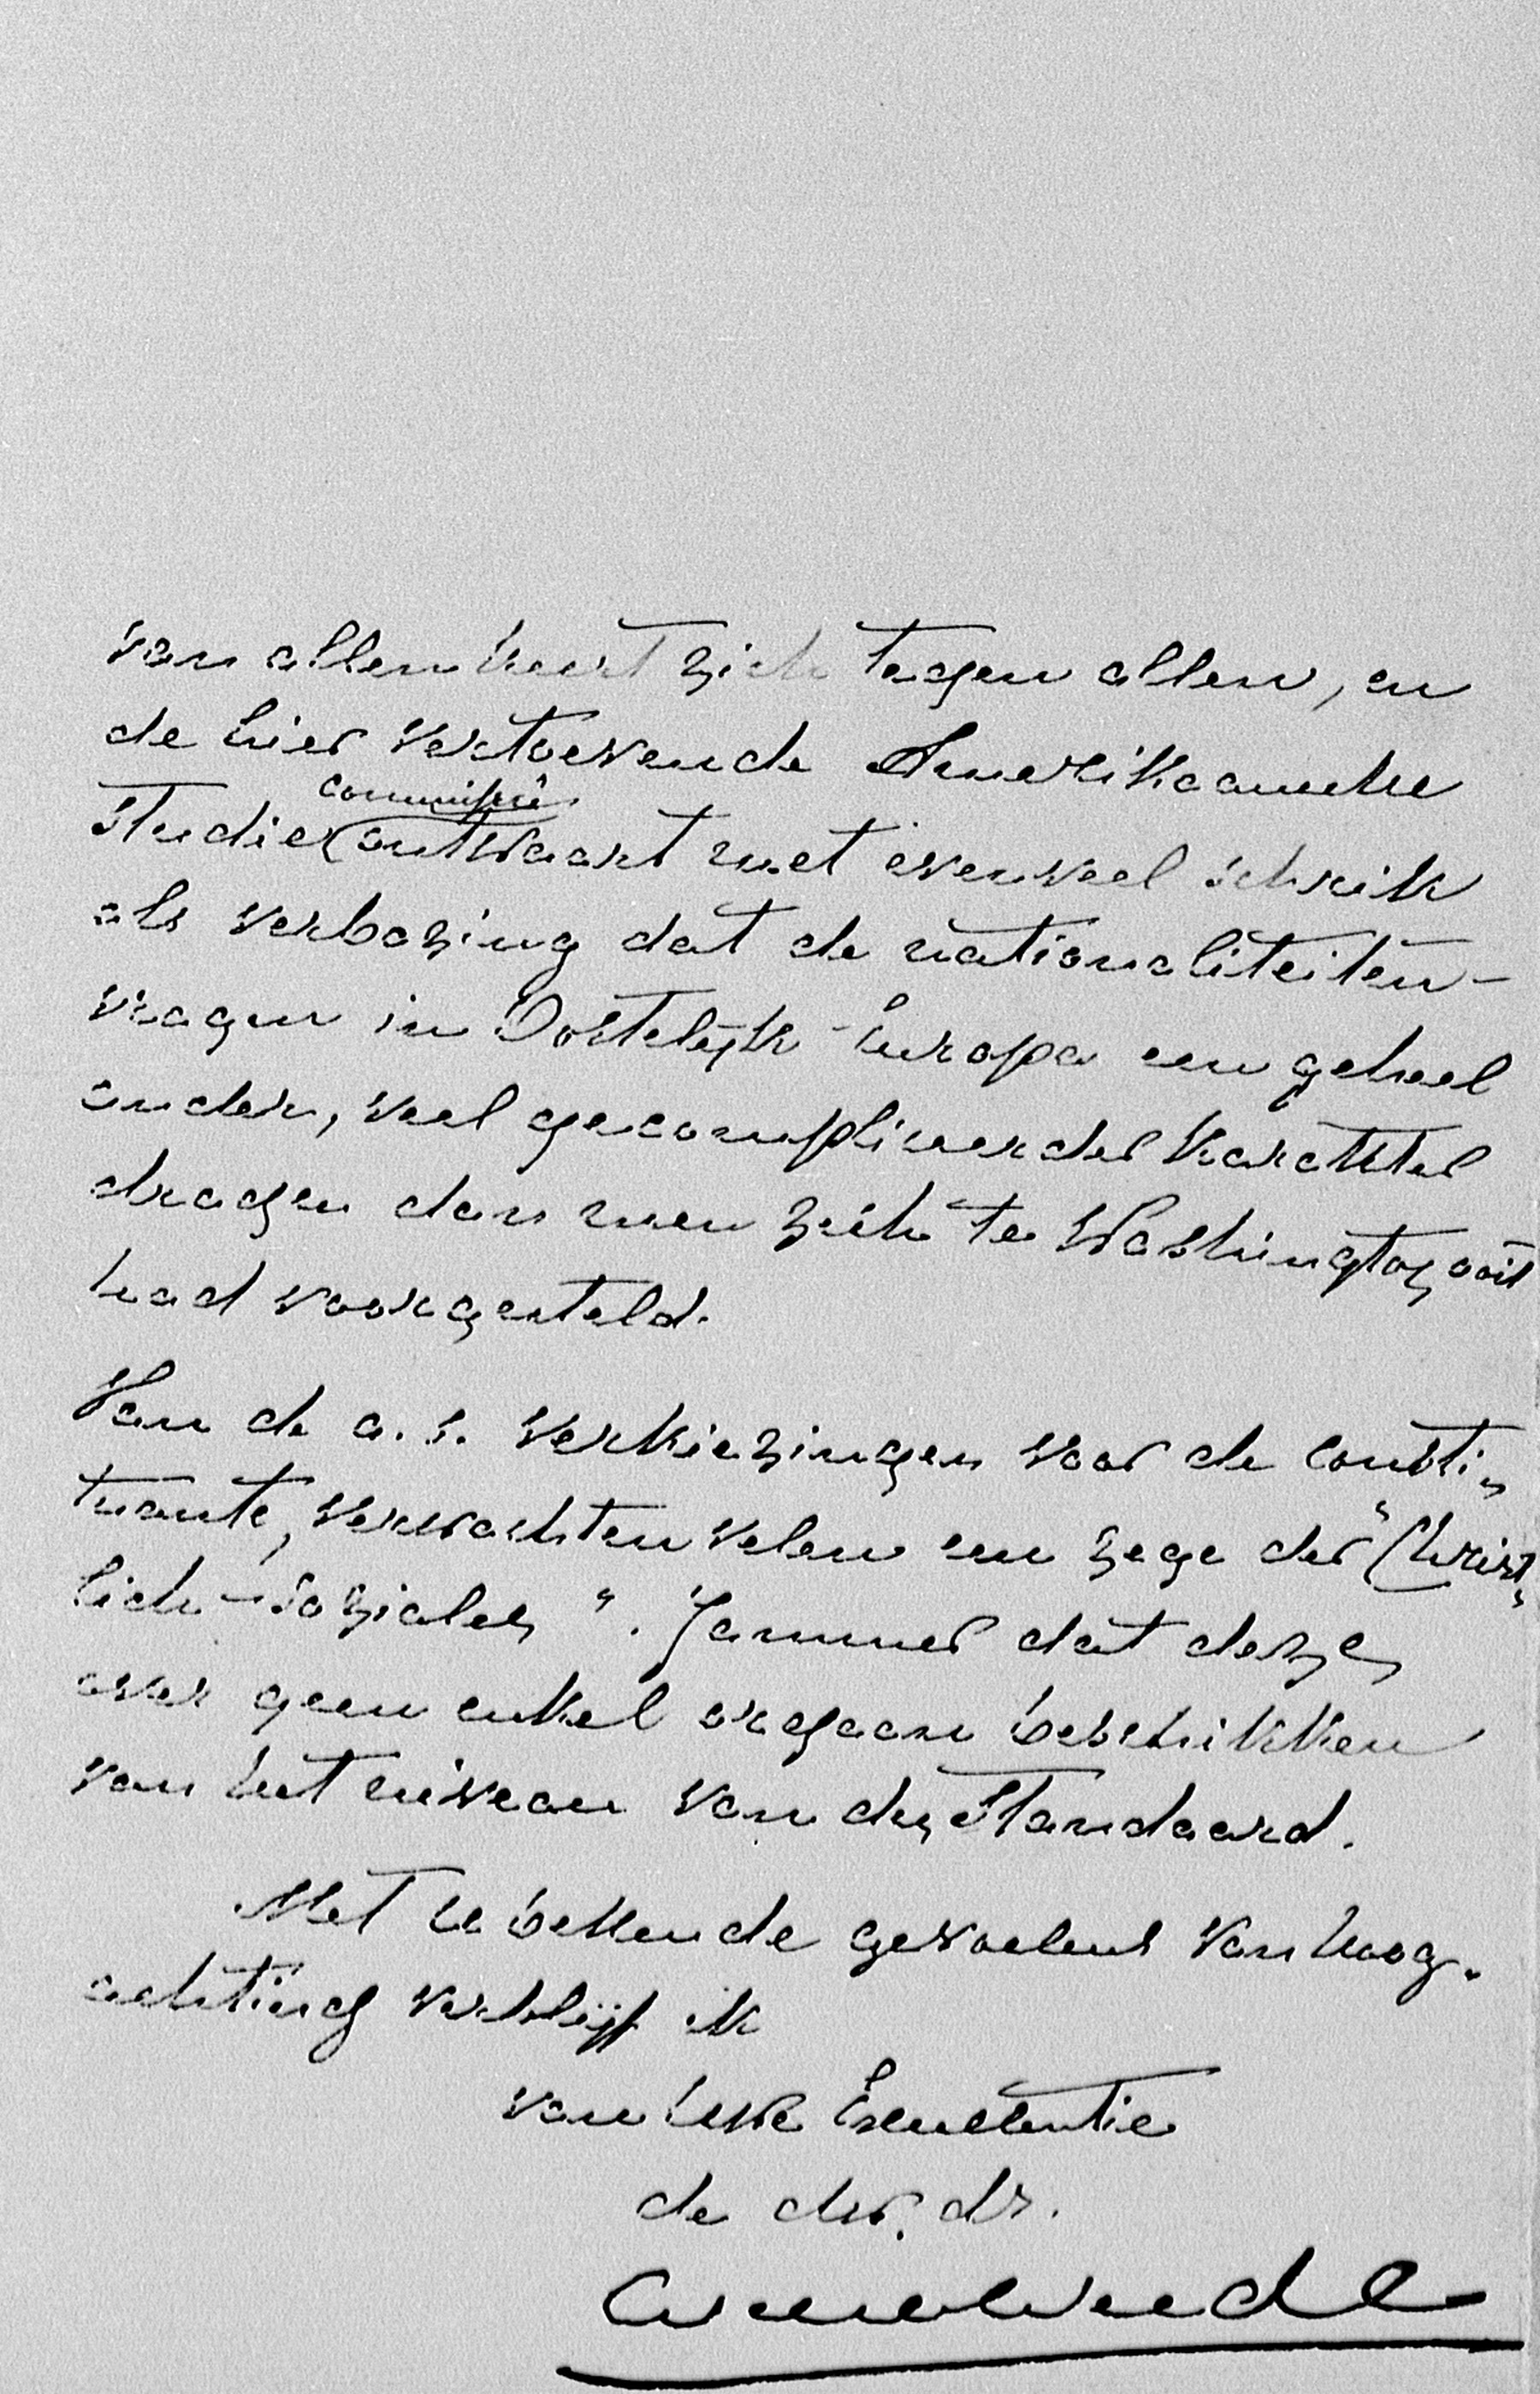 van allen keert zich tegen allen, en
de hier vertoevende Amerikaansche
commissie
studie ontwaart met evenveel schrik
als verbazing dat de nationaliteiten-
vragen in Oostelijk-Europa een geheel
ander, veel gecompliceerder karakter
dragen dan men zich te Washington ooit
had voorgesteld.
Van de a.s. verkiezingen voor de consti„
tuante, verwachten velen een zege der "Christ„
lich-Sozialen". Jammer dat dezen
over geen enkel orgaan beschikken
van het niveau van den Standaard.
Met de bekende gevoelens van hoog-
achting verblijf ik
van Uwe Excellentie
de dw. dr.